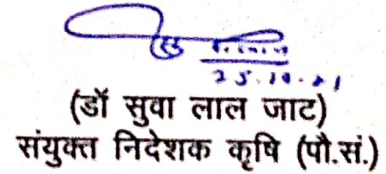 25.10.21
(डॉ सुवा लाल जाट)
संयुक्त निदेशक कृषि (पौ.सं.)